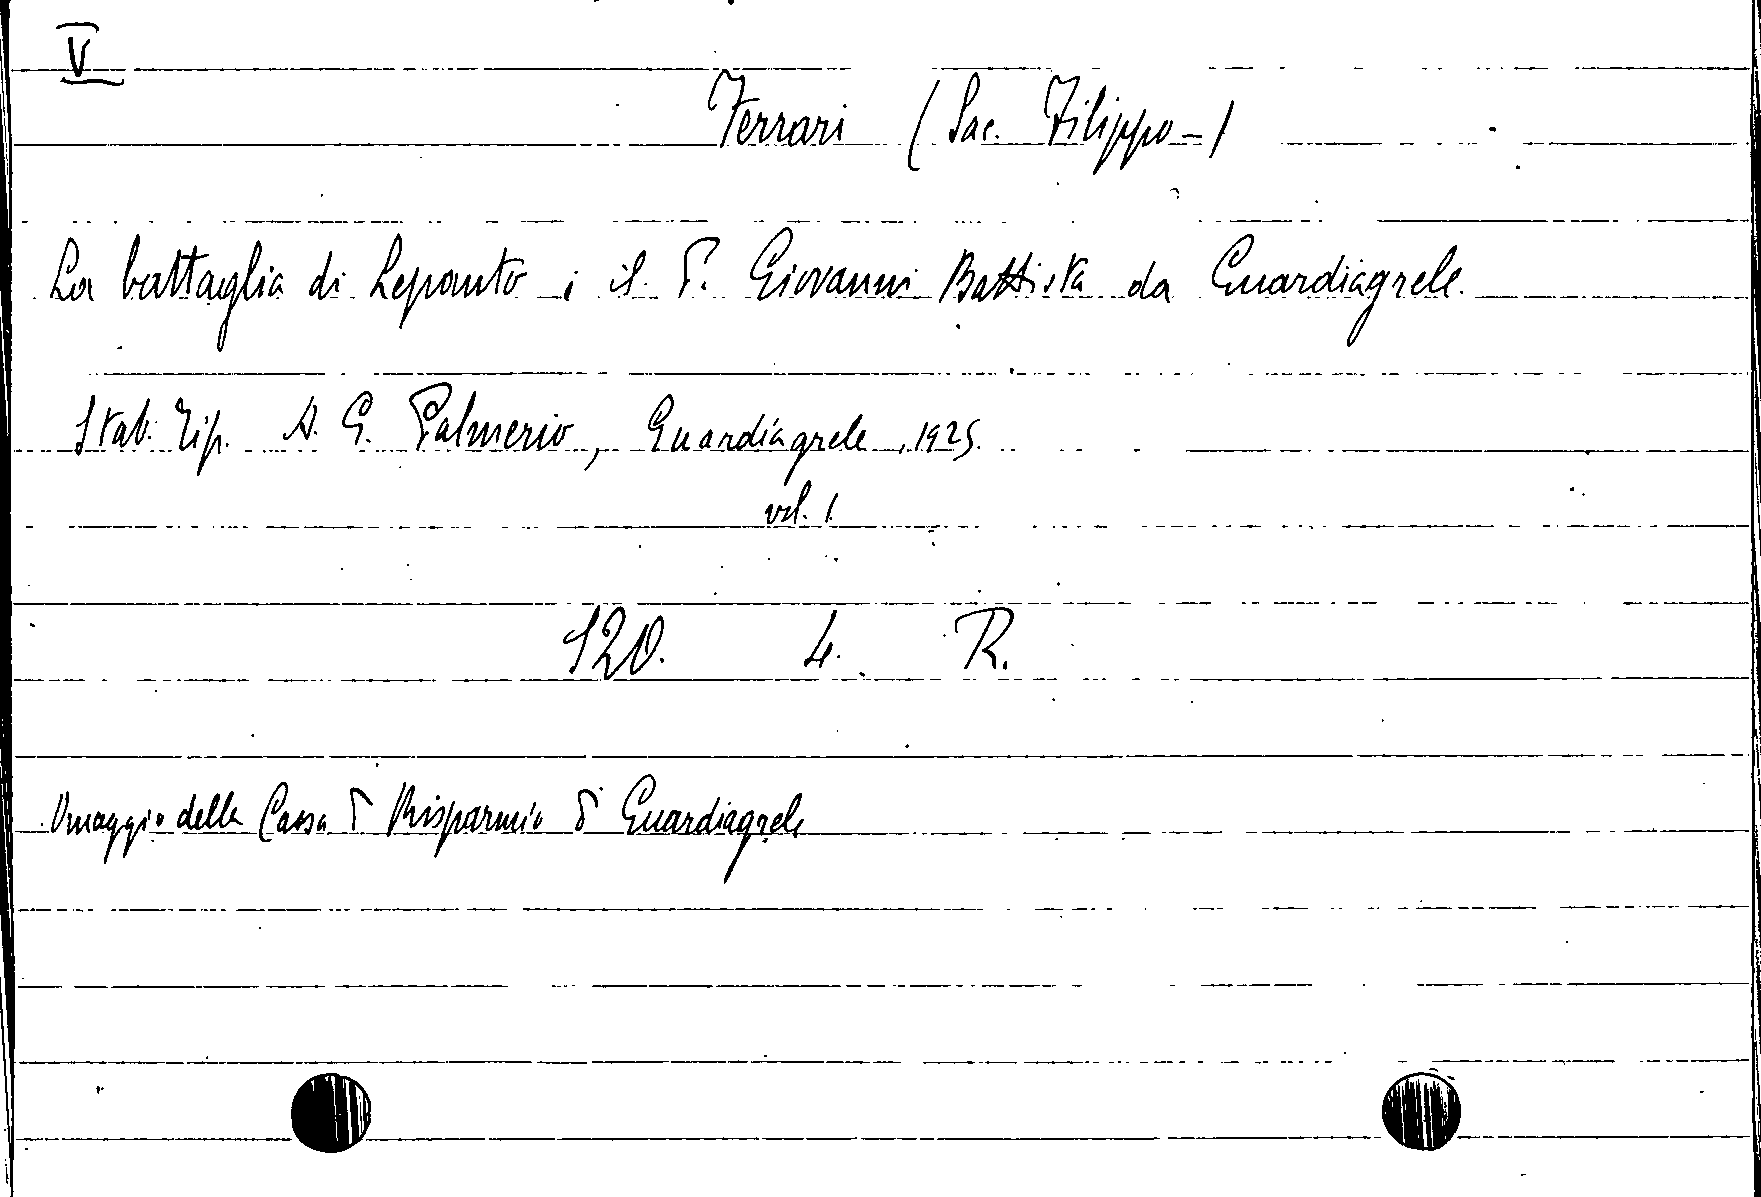 V
Ferrari (Sac. Filippo-)
La battaglia di Lepanto e il P. Giovanni Battista da Guardiagrele.
Stab. Tip. A. G. Palmerio, Guardiagrele, 1925.
vol. 1
S20. 4. R.
Omaggio della Cassa di Risparmio di Guardiagrele